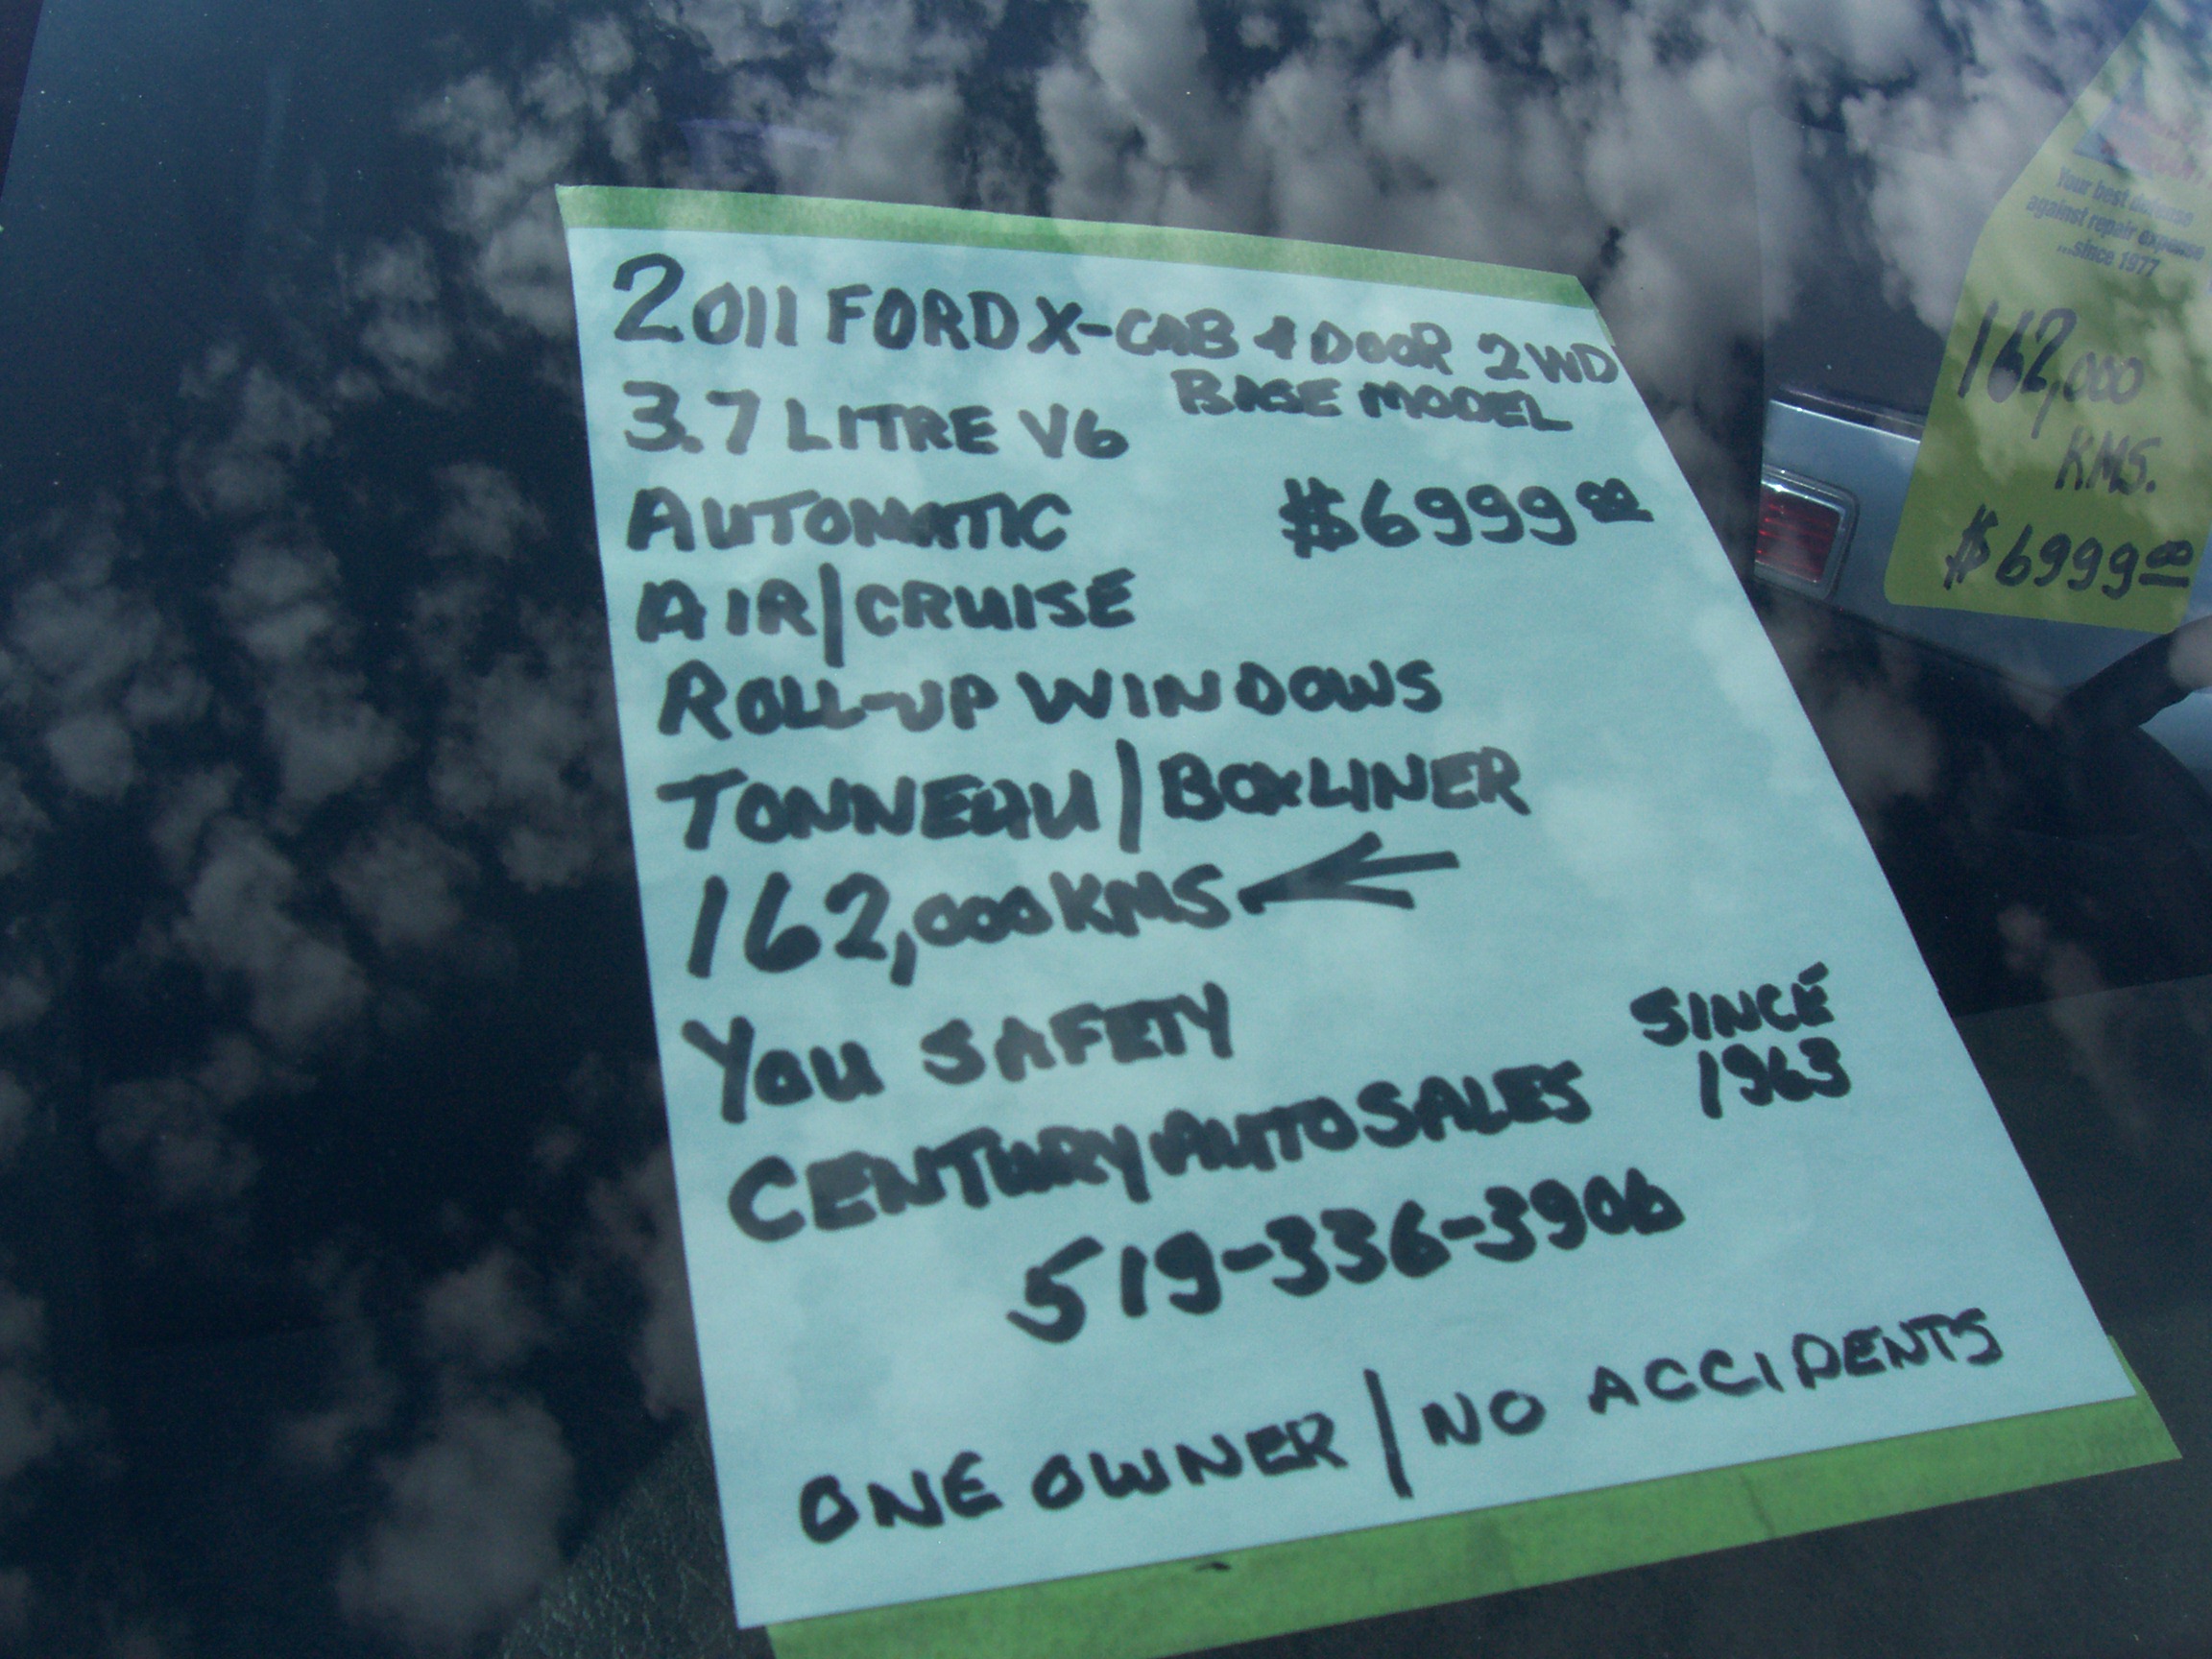 2011 FORD X-CAB 4 DOOR 2WD
BASE MODEL
3.7 LITRE V6
AUTOMATIC $6999.00
AIR/CRUISE
ROLL-UP WINDOWS
TONNEAU/BOXLINER
162,000 KMS
YOU SAFETY
SINCE
1963
CENTURY AUTO SALES
519-336-3906
ONE OWNER/NO ACCIDENTS
Your best defense
against repair expense
...since 1977
162,000
KMS.
$6999.00